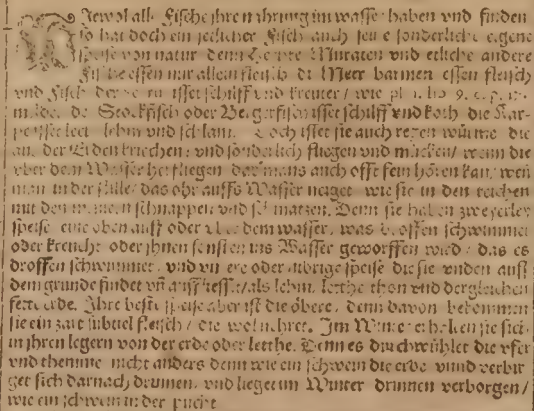 alle Fische jhre nahrung im wasser haben vnd finden
so hat doch ein jedlicher Fisch auch seine sonderliche eigene
speise von natur denn Muraten vnd etliche andere
Fische essen nur allein fleisch die Meer barmen essen fleisch
vnd Fisch der isset schilff vnd kreuter / wie lib 9
meldet der Stockfisch oder Bergerfisch isset schilff vnd koth die Kar-
pe isset lett lehm vnd schlam Doch isset sie auch regen würme die
auf der Erden kriechen vnd sonderlich fliegen vnd mücken / wenn die
vber dem Wasser her fliegen das mans auch offt fein hören kan / wen
man in der stille / das ohr auffs Wasser neiget wie sie in den teichen
mit den schnappen vnd schmatzen. Denn sie haben zweyerley
speise eine oben auff oder vber dem wasser, was droffen schwimmet
oder kreucht oder jhnen sonsten ins Wasser geworffen wird / das es
droffen schwimmet / vnd vntere oder vbrige speise die sie vnden auff
dem grunde findet vn̄ / als lehm letthe thon vnd dergleichen
fette erde. Jhre beste speise aber ist die öbere denn davon bekommen
sie ein zart subtiel fleisch / Jm Winter erhalten sie sich
in jhren legern von der erde oder letthe. Denn es durchwühlet die vfer
vnd themme nicht anders denn wie ein schwein die erde vnnd verbir
get sich darnach drinnen vnd lieget im Winter drinnen verborgen /
wie ein schwein in der